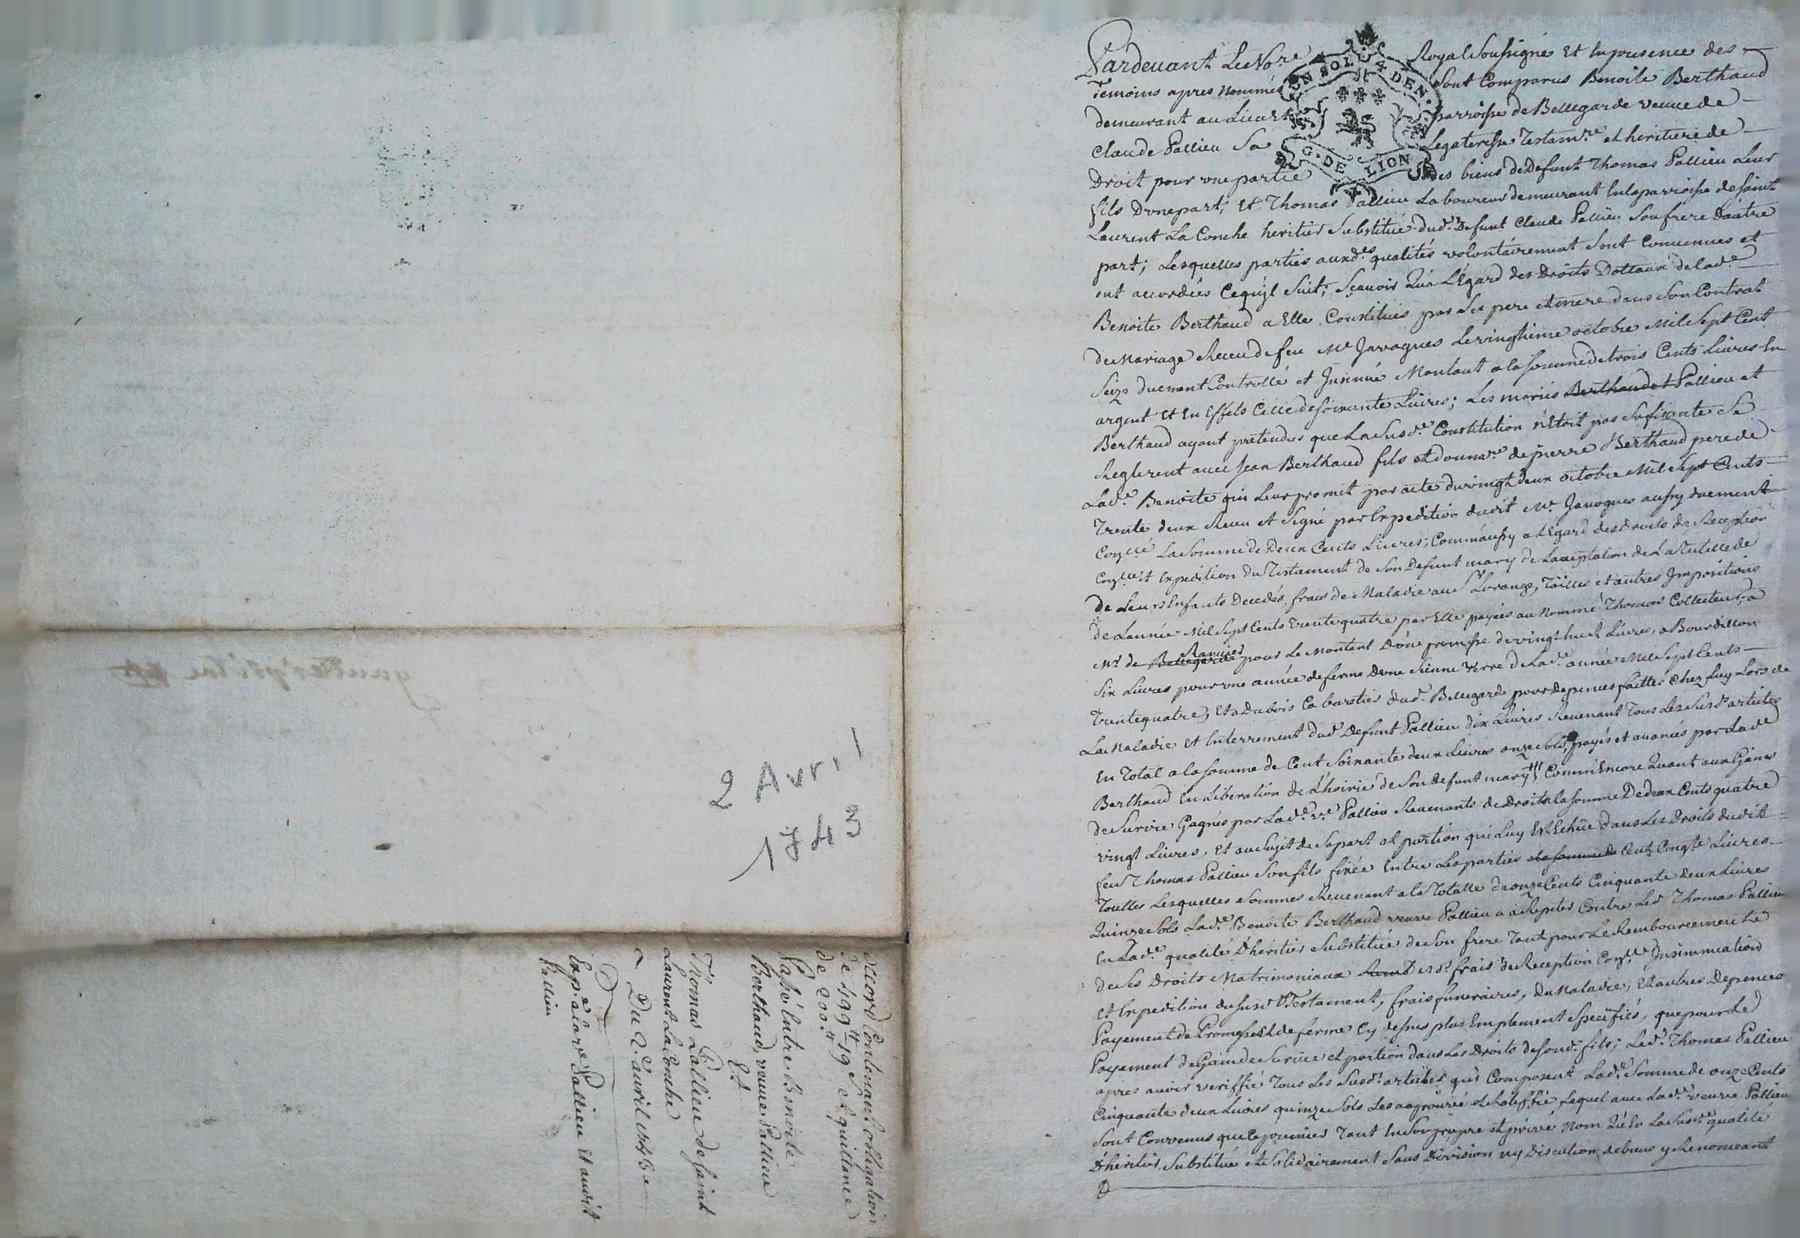 Pardeuant Le No.re Royal Soussigné Et En presence des
Temoins apres nommés Sont Comparus Benoite Berthaud
demeurant au Lieu Et parroisse de Bellegarde veuue de
Claude Pallieu Sa Legateresse Testam.re et heritiere de
Droit pour une partie des biens de Defunt Thomas Pallieu Leur
fils D'une part; Et Thomas Pallieu Laboureur demeurant En la parroisse de Saint
Laurent La Conche heritier Substitué dud.t Defunt Claude Pallieu Son frere D'autre
part; Lesquelles parties auxd.es qualités volontairement Sont Conuenues et
ont accordées Ce qui Suit; Scauoir Qu'a L'Egard des Droits Dottaux de lad.e
Benoite Berthaud a Elle Constitués par Ses pere et mere dans Son Contrat
de Mariage Receu de feu M.e Javogues Le vingtieme octobre Mil Sept Cent
Seize duement Controllé et Insinué Montant a la Somme de trois Cents Liures En
argent Et En Effets Celle de Soixante Liures; Les mariés Berthaud et Pallieu et
Berthaud ayant pretendus que La Susd.e Constitution n'Etoit pas Sufisante Se
Reglerent auec Jean Berthaud fils et donnat.re de pierre Berthaud pere de
Lad.e Benoite qui Leur promit par acte du vingt deux octobre Mil Sept Cents
Trente deux Receu et Signé par Expedition dudit M.e Javogues aussy duement
La Somme de Deux Cents Liures; Comm'aussy a L'Egard des Droits de Reception
et Expedition du Testament de Son Defunt mary de L'acceptation de La Tutelle de
de Leurs Enfants Decedés, frais de Maladie Tailles et autres Impositions
de L'année Mil Sept Cents Trente quatre par Elle payées au Nommé Thomas Collecteur, a
M.r de Bellegarde pour Le Montant D'une promesse de vingt huit Liures, a Bourdillon
Six Liures pour une année de ferme D'une Sienne Terre de Lad.e année Mil Sept Cents
Trente quatre, Et a Dubois Cabartier dud.t Bellegarde pour depences faittes Chez Luy Lors de
La Maladie et Enterrement dud.t Defunt Pallieu dix Liures Reuenant Tous Les Susd.ts articles
En Total a la Somme de Cent Soixante deux Liures onze Sols, payés et auancés par Lad.e
Berthaud En Liberation de L'hoirie de Son defunt mary; Comm'Encore Quant aux Gains
de Survie Gagnés par Lad.e v.e Pallieu Reuenants de Droit a la Somme De deux Cents quatre
vingt Liures, Et au Sujet de Sa part et portion qui Luy Est Echüe dans Les Droits dudit
feu Thomas Pallieu Son fils fixée Entre Les parties a la Somme de Cent Cinq.te Liures
Touttes Lesquelles Sommes Reuenant a la Totalle D'onze Cents Cinquante deux Liures
Quinze Sols Lad.e Benoite Berthaud veuue Pallieu a a Repeter Contre Led.t Thomas Pallieu
En Lad.e qualité D'heritier Substitué de Son frere Tant pour Le Remboursement
de Ses Droits Matrimoniaux frais de Reception Insinuation
Et Expedition du Susd.t Testament, frais funeraires, de Maladie, Et autres Depences
Payement de Promesse de ferme Cy dessus plus Emplement Specifiés, que pour Le
Payement de Gain de Survie et portion dans Les Droits de Sond.t fils; Led.t Thomas Pallieu
apres auoir veriffié Tous Les Susd.ts articles qui Composent Lad.e Somme de onze Cents
Cinquante deux Liures quinze Sols Les a aprouvés et Lequel auec Lad.e veuue Pallieu
Sont Conuenus que Le premier Tant En Son propre et privé Nom Qu'En La Susd.e qualité
D'heritier Substitué et Solidairement Sans Division ny Discution de biens y Renonceant
2 Avril
1743
accord Contenant obligation
de 499 ll 19 s Et quittance
de 200 ll
Passé Entre Benoite
Berthaud, veuue Pallieu
Et
Thomas Pallieu de Saint
Laurent La Conche
Du 2.e auril 1743
Exp.é a la v.e Pallieu Et audit
Pallieu